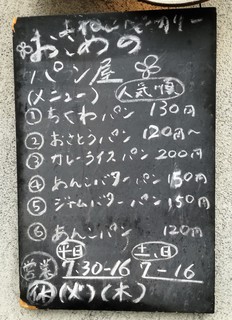 おこめの
パン屋
(メニュー) 人気順
① ちくわパン 130円
② おさとうパン 120円〜
③ カレーライスパン 200円
④ あんこバターパン 150円
⑤ ジャムバターパン 150円
⑥ あんこパン 120円
平日 土、日
営業 7.30-16 7-16
休 (火)(木)